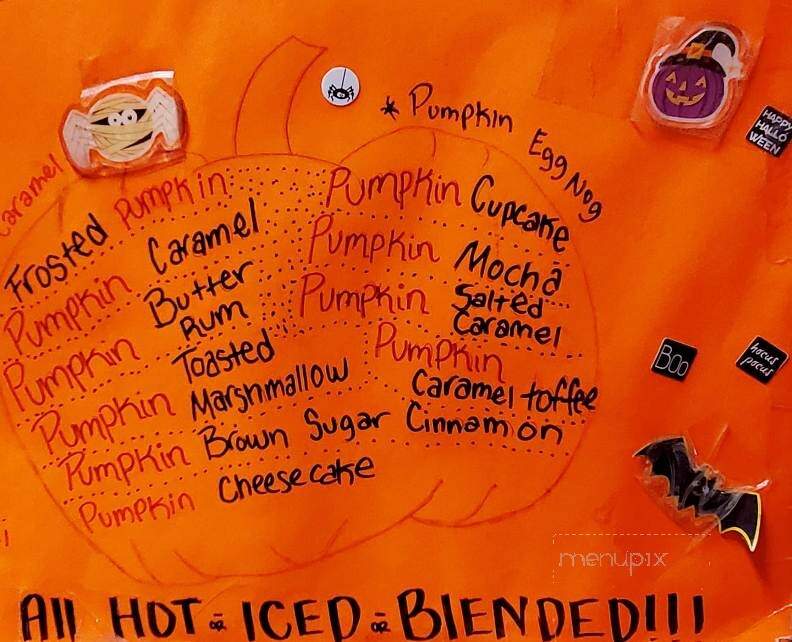 * Pumpkin Egg Nog
Caramel
Frosted Pumpkin
Pumpkin Caramel
Pumpkin Butter Rum
Pumpkin Toasted Marshmallow
Pumpkin Brown Sugar Cinnamon
Pumpkin Cheesecake
Pumpkin Cupcake
Pumpkin Mocha
Pumpkin Salted Caramel
Pumpkin Caramel toffee
HAPPY
HALLO
WEEN
BOO
hocus
pocus
menupix
All HOT or ICED or BlENDED!!!